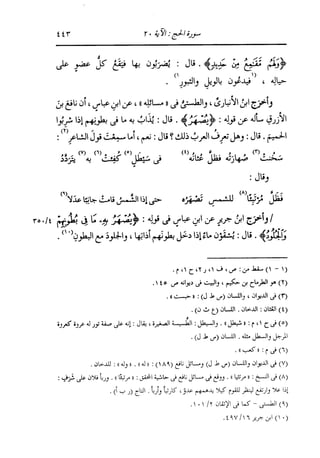 سورة الحج : الآية ٢٠ ٤٤٣
﴿وَلَهُم مَّقَٰمِعُ مِنْ حَدِيدٍ﴾ . قال : يُضرَبُون بها فيَقَعُ كلُّ عضوٍ على
حيالِه ، (١فيَدعُون بالويلِ والثبورِ١) .
وأخرَج ابنُ الأنبارىِّ ، والطستىُّ فى « مسائلِه » ، عن ابنِ عباسٍ ، أن نافعَ بنَ
الأزرقِ سأله عن قولِه : ﴿يُصْهَرُ﴾ . قال : يُذابُ به ما فى بطونِهم إذا شرِبُوا
الحميمَ . قال : وهل تعرِفُ العربُ ذلك ؟ قال : نعم ، أما سمِعتَ قولَ الشاعرِ(٢) :
سَخُنت(٣) صُهارتُه فظَلَّ عُثانُه(٤) فى سَيْطَلٍ(٥) كُفِئَت(٦) به(٧) يَتَرَدَّدُ
وقال :
فظَلَّ مُرْتَبِئًا(٨) للشمسِ تَصْهَرُه حتى إذا الشَّمسُ قامت جانِبًا عَدَلا(٩)
/ وأخرَج ابنُ جريرٍ عن ابنِ عباسٍ فى قولِه : ﴿يُصْهَرُ بِهِۦ مَا فِى بُطُونِهِمْ ٣٥٠/٤
وَالْجُلُودُ﴾ . قال : يُسْقَوْن ماءً إذا دخَل بطونَهم أذابَها ، والجلودَ مع البطونِ(١٠) .
(١ - ١) سقط من : ص ، ف ١ ، ر ٢ ، ح ١ ، م .
(٢) هو الطرماح بن حكيم ، والبيت فى ديوانه ص ١٤٥ .
(٣) فى الديوان ، واللسان (ص ط ل) : « حبست » .
(٤) العُثان : الدخان . اللسان (ع ث ن) .
(٥) فى ح ١ ، م : « شيطل » . والسيطل : الطُّسيسة الصغيرة ، يقال : إنه على صفة تور له عروة كعروة
المرجل والسطل مثله . اللسان (س ط ل) .
(٦) فى م : « كعب » .
(٧) فى الديوان ، واللسان (ص ط ل) ومسائل نافع (١٨٩) : « له » . « وله » : للدخان .
(٨) فى النسخ : « مرتبا » . ووقع فى مسائل نافع فى حاشية المحقق : « مرتبئًا » . وربأ فلان على شرَف :
إذا علا وارتفع لينظر للقوم كيلا يدهمهم عدو ، كارتبأ وأربأ . التاج (ر ب أ) .
(٩) الطستى - كما فى الإتقان ٢/ ١٠١ .
(١٠) ابن جرير ١٦/ ٤٩٧ .